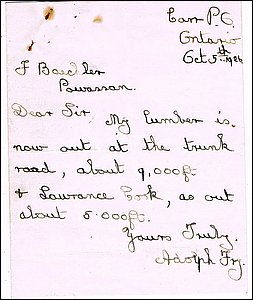 Carr P.O.
Ontario
Oct 5th 1926
F Baechler
Powassan.
Dear Sir, My lumber is
now out at the trunk
road, about 9,000ft
& Lawrance Cook, as out
about 5.000ft.
Yours Truly.
Adolph Fry.